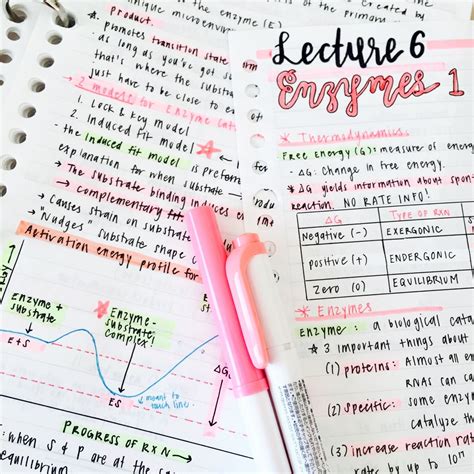 unique microenviron
created by
of the primary
the enzyme (E)
product.
promotes transition state form
as long as you've got so
that's where the substra
just have to be close to e
2 models for enzyme cata
1. Lock & key model
2. Induced fit model
the induced fit model is prefe
explanation for when substrat
The substrate binding induces e
complementary
Causes strain on substrate
"Nudges" substrate shape c
Activation energy profile for
Enzyme + substrate
E+S
Enzyme-substrate complex!
ES
meant to touch line.
ΔG
PROGRESS OF RXN
when S & P are at the s
equilibrium
Lecture 6
Enzymes 1
* Thermodynamics.
FREE ENERGY (G): measure of energ
ΔG: Change in free energy.
ΔG yields information about spon
reaction. NO RATE INFO!
ΔG TYPE OF RXN
Negative (-) EXERGONIC
positive (+) ENDERGONIC
Zero (0) EQUILIBRIUM
* Enzymes
ENZYME: a biological cata
3 important things about
(1) proteins: Almost all en
RNAs can
(2) Specific: some enzym
catalyze th
(3) increase reaction rate
rates by 10